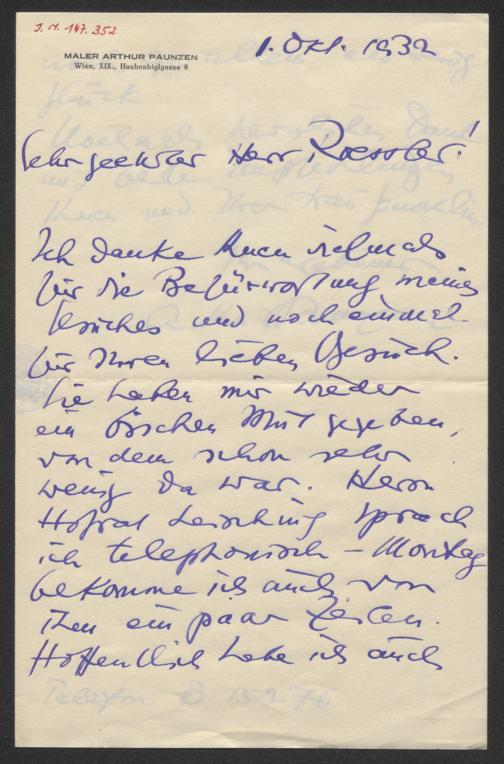 J. N. 147.352
MALER ARTHUR PAUNZEN
Wien, XIX., Haubenbiglgasse 8
1. Okt. 1932
Sehr geehrter Herr Roessler!
Ich danke Ihnen vielmals
für die Befürwortung meines
Gesuches und noch einmal
für Ihren lieben Besuch.
Sie haben mir wieder
ein bischen Mut gegeben,
von dem schon sehr
wenig da war. Herrn
Hofrat Leisching sprach
ich telephonisch – Montag
bekomme ich auch von
ihm ein paar Zeilen.
Hoffentlich habe ich auch
Telefon B 15276